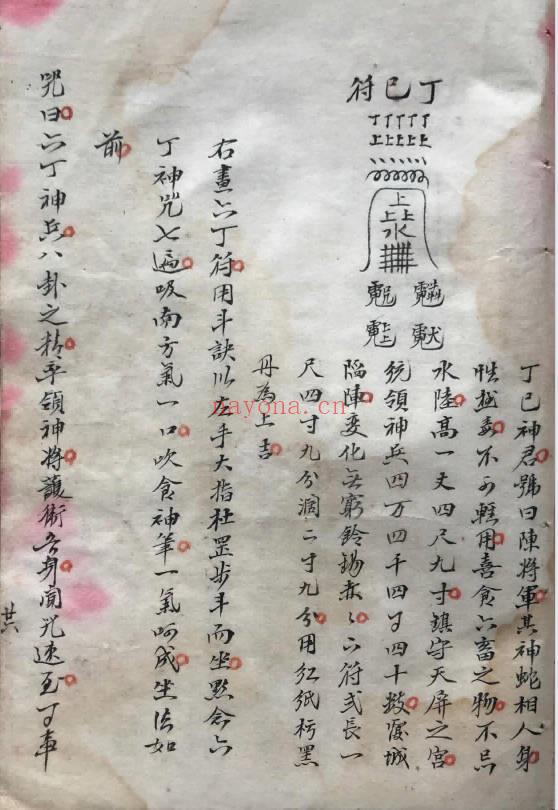 丁巳符
丁丁丁丁丁
上上上上上
上
上上
水
丁巳神君號曰陳將軍其神蛇相人身
性越毒不可輕用喜食六畜之物不忌
水陸高一丈四尺九寸鎮守天屏之宮
統領神兵四万四千四百四十数城
陷陣变化无窮鈴錫赤〻六符式長一
尺四寸九分濶二寸九分用红紙黑
丹為上吉
右畫六丁符用斗訣以左手大指罡步斗而坐默念六
丁神咒七遍吸南方氣一口吹食神筆一氣呵成坐法如
前
咒曰六丁神兵八卦之精平領神將護衛吾身聞咒速至丁奉
nayona.cn